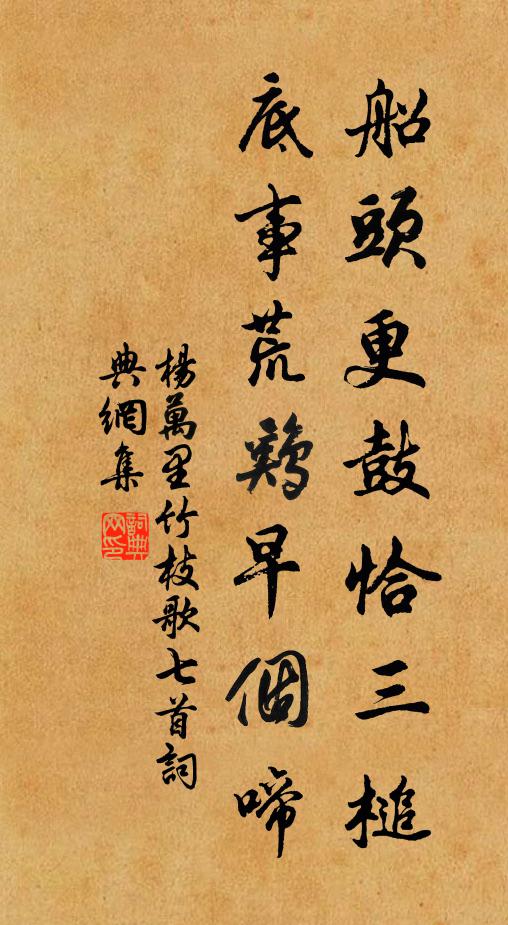 船頭更鼓恰三槌
底事荒鷄早個啼
楊萬里竹枝歌七首詞
典網集
詞典网印